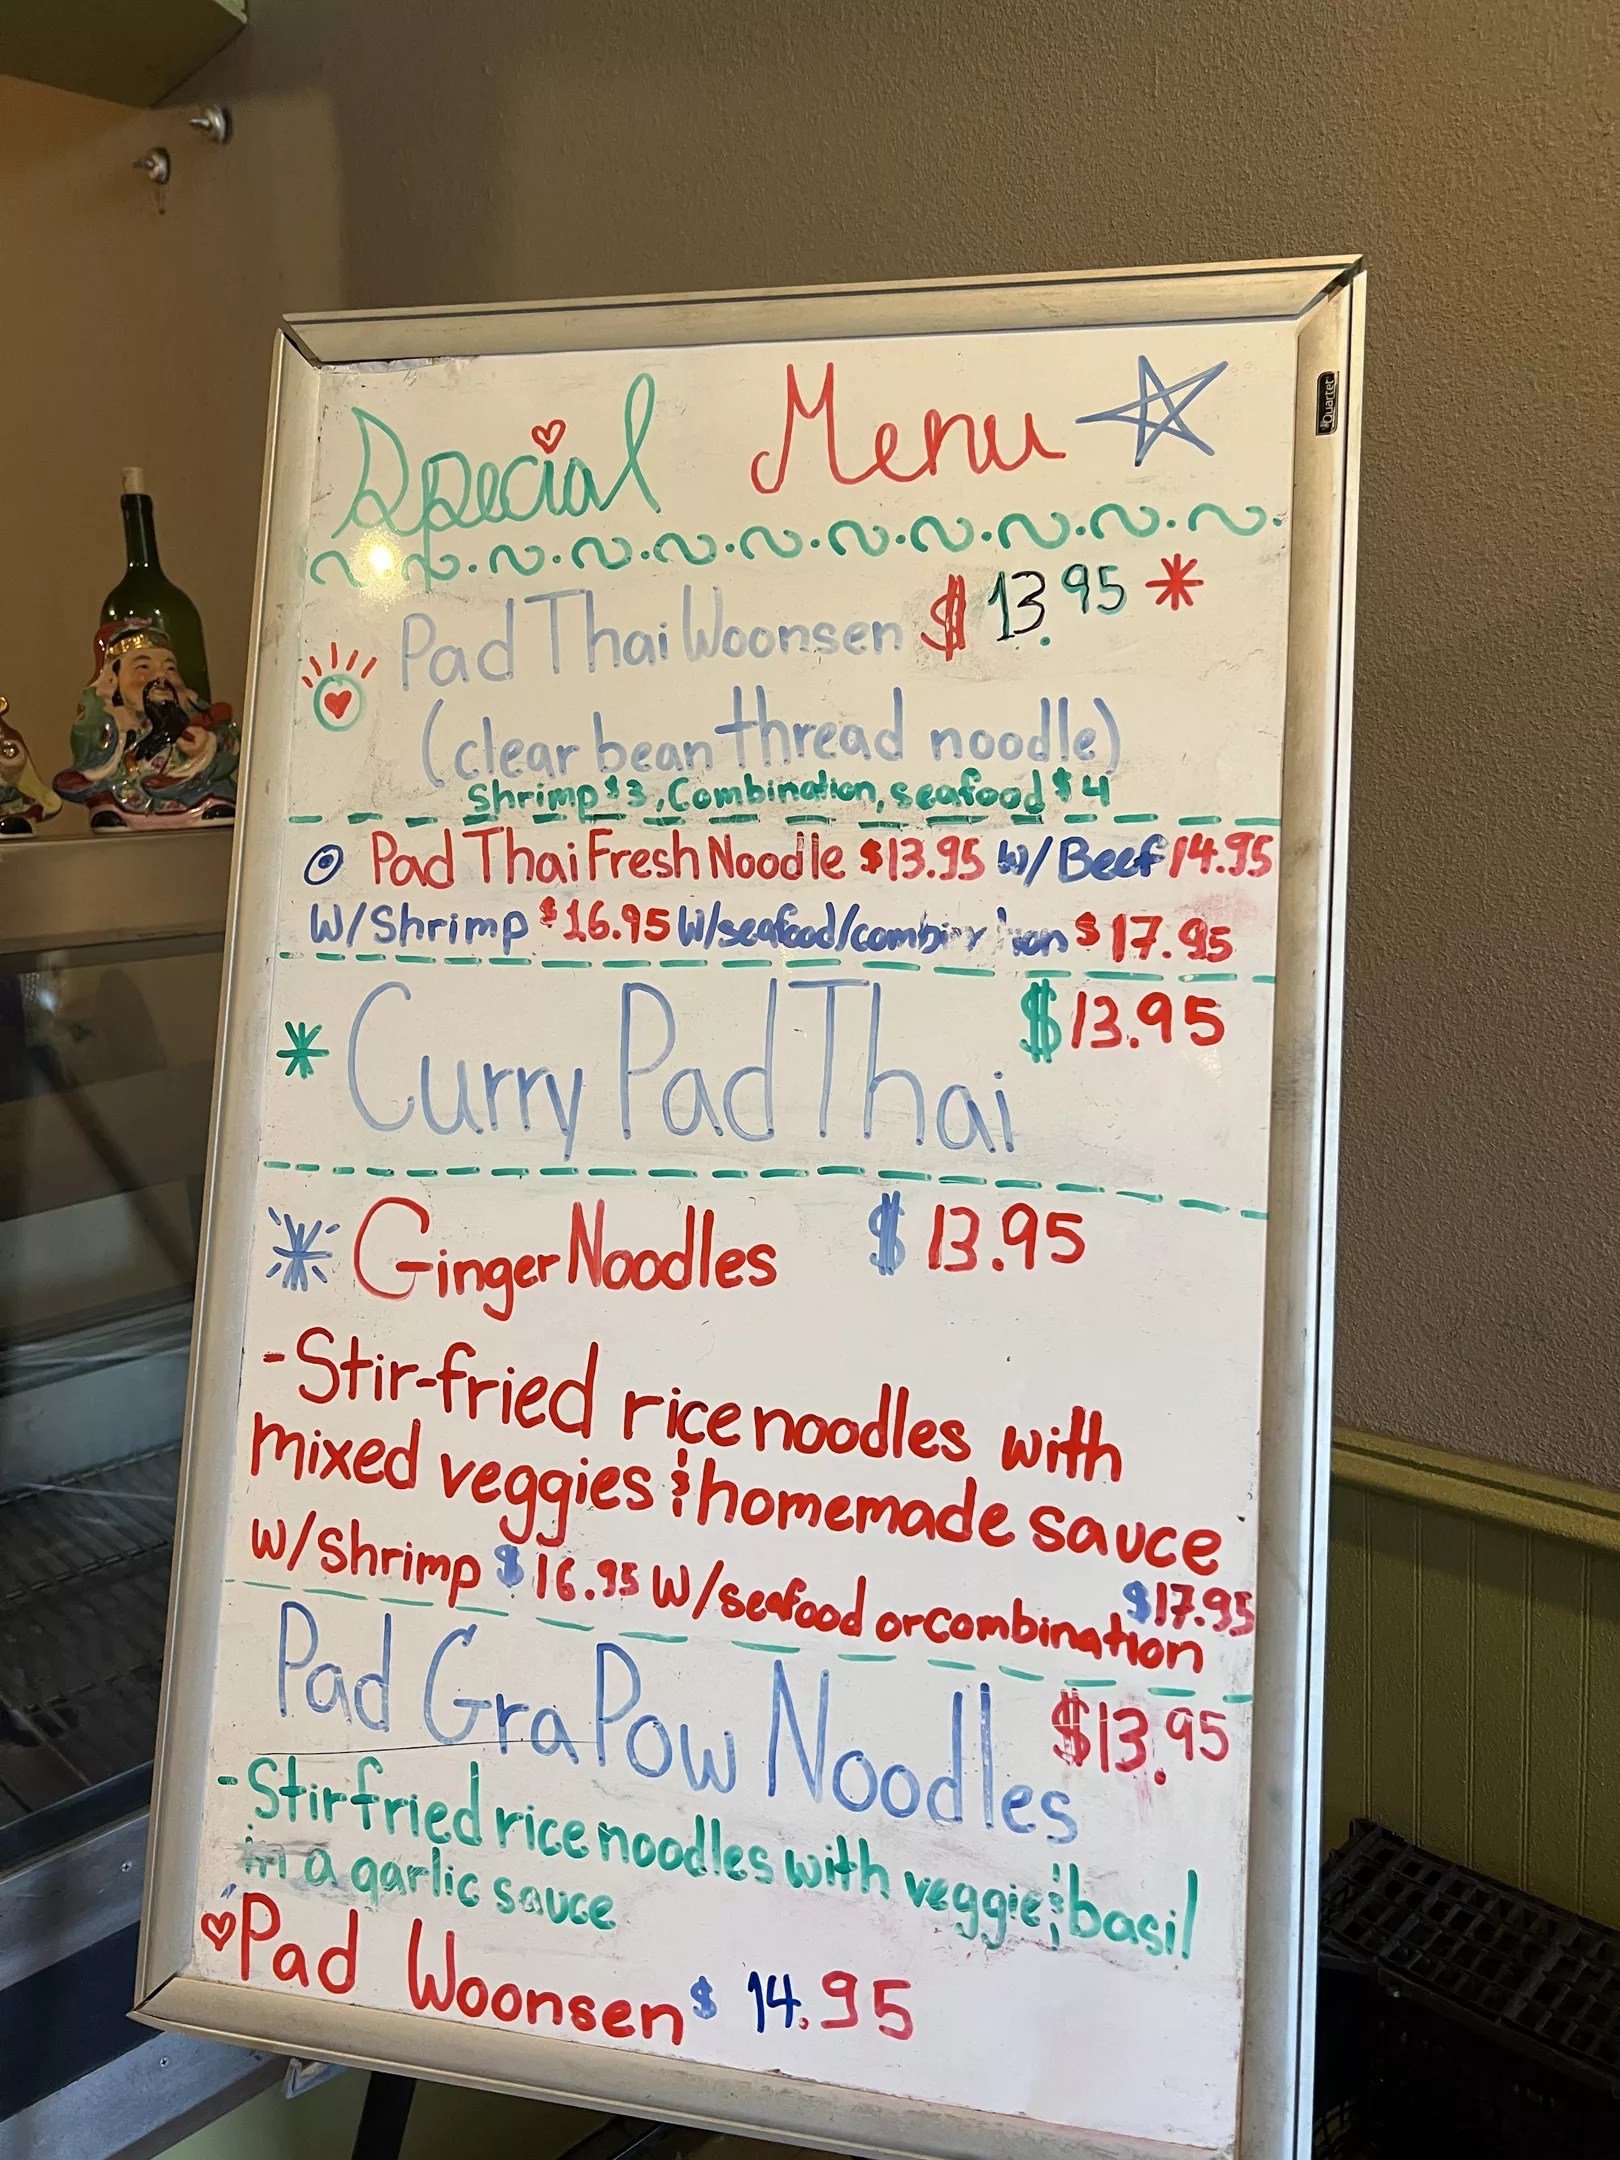 Special Menu
Pad Thai Woonsen $13.95
(clear bean thread noodle)
Shrimp $3, Combination, seafood $4
Pad Thai Fresh Noodle $13.95 W/Beef 14.95
W/Shrimp $16.95 W/seafood/ $17.95
Curry Pad Thai $13.95
Ginger Noodles $13.95
-Stir-fried rice noodles with
mixed veggies & homemade sauce
W/Shrimp $16.95 W/seafood or combination $17.95
Pad Gra Pow Noodles $13.95
-Stir fried rice noodles with veggie & basil
in a garlic sauce
Pad Woonsen $14.95
Quartet